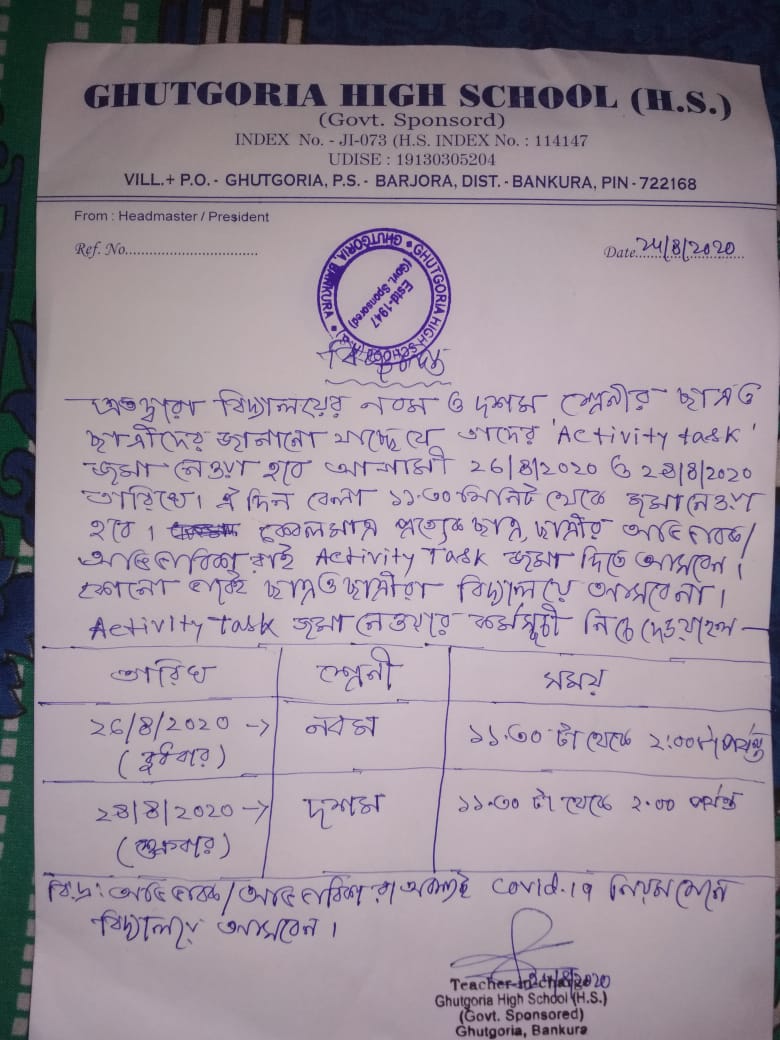 GHUTGORIA HIGH SCHOOL (H.S.)
(Govt. Sponsord)
INDEX No. - JI-073 (H.S. INDEX No. : 114147
UDISE : 19130305204
VILL.+ P.O. - GHUTGORIA, P.S. - BARJORA, DIST. - BANKURA, PIN - 722168
From : Headmaster / President
Ref. No.
Date 24/8/2020
GHUTGORIA HIGH SCHOOL (H.S.) • GHUTGORIA, BANKURA •
Estd-1947
(Govt. Sponsored)
বিজ্ঞপ্তি
এতদ্বারা বিদ্যালয়ের নবম ও দশম শ্রেনীর ছাত্র ও
ছাত্রীদের জানানো যাচ্ছে যে তাদের 'Activity task'
জমা নেওয়া হবে আগামী 26/8/2020 ও 28/8/2020
তারিখে। ঐ দিন বেলা ১১.৩০ মিনিট থেকে জমা নেওয়া
হবে। কেবলমাত্র প্রত্যেক ছাত্র, ছাত্রীর অভিভাবক/
অভিভাবিকারাই Activity Task জমা দিতে আসবেন।
কোনো ভাবেই ছাত্র ও ছাত্রীরা বিদ্যালয়ে আসবেনা।
Activity Task জমা নেওয়ার কর্মসূচী নিচে দেওয়া হল —
তারিখ শ্রেনী সময়
২৬/৪/২০২০ → নবম ১১.৩০ টা থেকে ২:০০ টা পর্যন্ত
(বুধবার)
২৪/৪/২০২০ → দশম ১১.৩০ টা থেকে ২.০০ পর্যন্ত
(শুক্রবার)
বি.দ্র: অভিভাবক/অভিভাবিকারা অবশ্যই Covid-19 নিয়ম মেনে
বিদ্যালয়ে আসবেন।
24/8/2020
Teacher-in-charge
Ghutgoria High School (H.S.)
(Govt. Sponsored)
Ghutgoria, Bankura